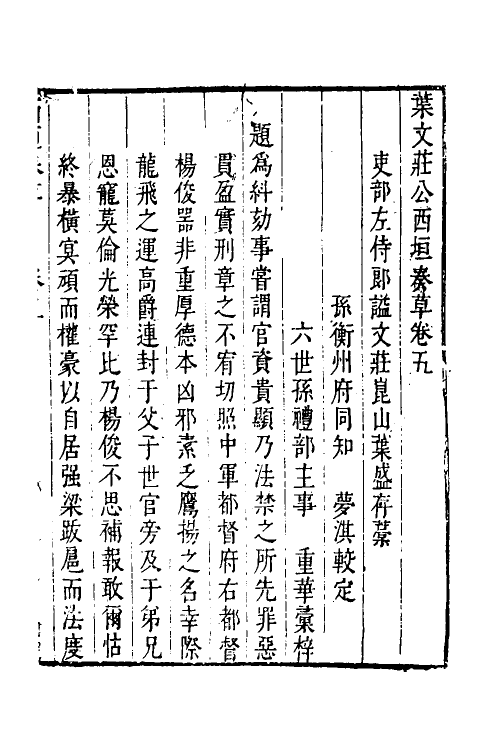 葉文莊公西垣奏草卷五
吏部左侍郎謚文莊崑山葉盛存藁
孫衡州府同知 夢淇較定
六世孫禮部主事 重華彙梓
題爲糾劾事嘗謂官資貴顯乃法禁之所先罪惡
貫盈實刑章之不宥切照中軍都督府右都督
楊俊器非重厚德本凶邪素乏鷹揚之名幸際
龍飛之運高爵連封于父子世官旁及于弟兄
恩寵莫倫光榮罕比乃楊俊不思補報敢爾怙
終暴橫冥頑而權豪以自居强梁跋扈而法度